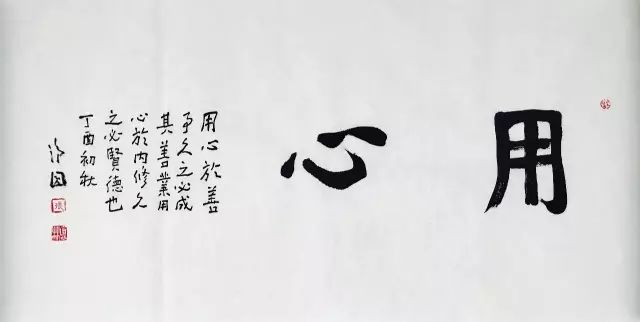 用心
用心於善
事久之必成
其善業用
心於內修久
之必賢德也
丁酉初秋